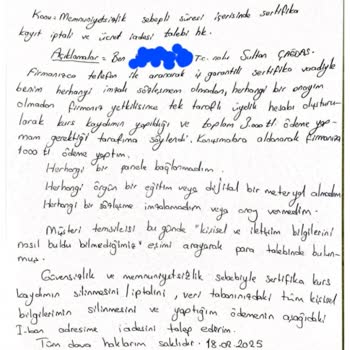 Konu = Memnuniyetsizlik sebepli süresi içerisinde sertifika
kayıt iptali ve ücret iadesi talebi hk.
Açıklamalar = Ben T.c. nolu Sultan ÇAĞDAŞ.
Firmanızca telefon ile aranarak iş garantili sertifika vaadiyle
benim herhangi imzalı sözleşmem olmadan, herhangi bir onayım
olmadan firmanız yetkilisince tek taraflı üyelik hesabı oluşturu-
larak kurs kaydımın yapıldığı ve toplam 3.000 tl. ödeme yap-
mam gerektiği tarafıma söylendi. Konuşmalara aldanarak firmanıza
1000 tl ödeme yaptım.
Herhangi bir panele bağlanmadım.
Herhangi örgün bir eğitim veya dijital bir meteryal almadım
Herhangi bir sözleşme imzalamadım veya onay vermedim.
Müşteri temsilcisi bu günde "kişisel ve iletişim bilgilerini
nasıl buldu bilmediğimiz" eşimi arayarak para talebinde bulun-
muş.
Güvensizlik ve memnuniyetsizlik sebebiyle sertifika kurs
kaydımın silinmesini/iptalini, veri tabanınızdaki tüm kişisel
bilgilerimin silinmesini ve yaptığım ödemenin aşağıdaki
I-ban adresime iadesini talep ederim.
Tüm dava haklarım saklıdır. 18.02.2025